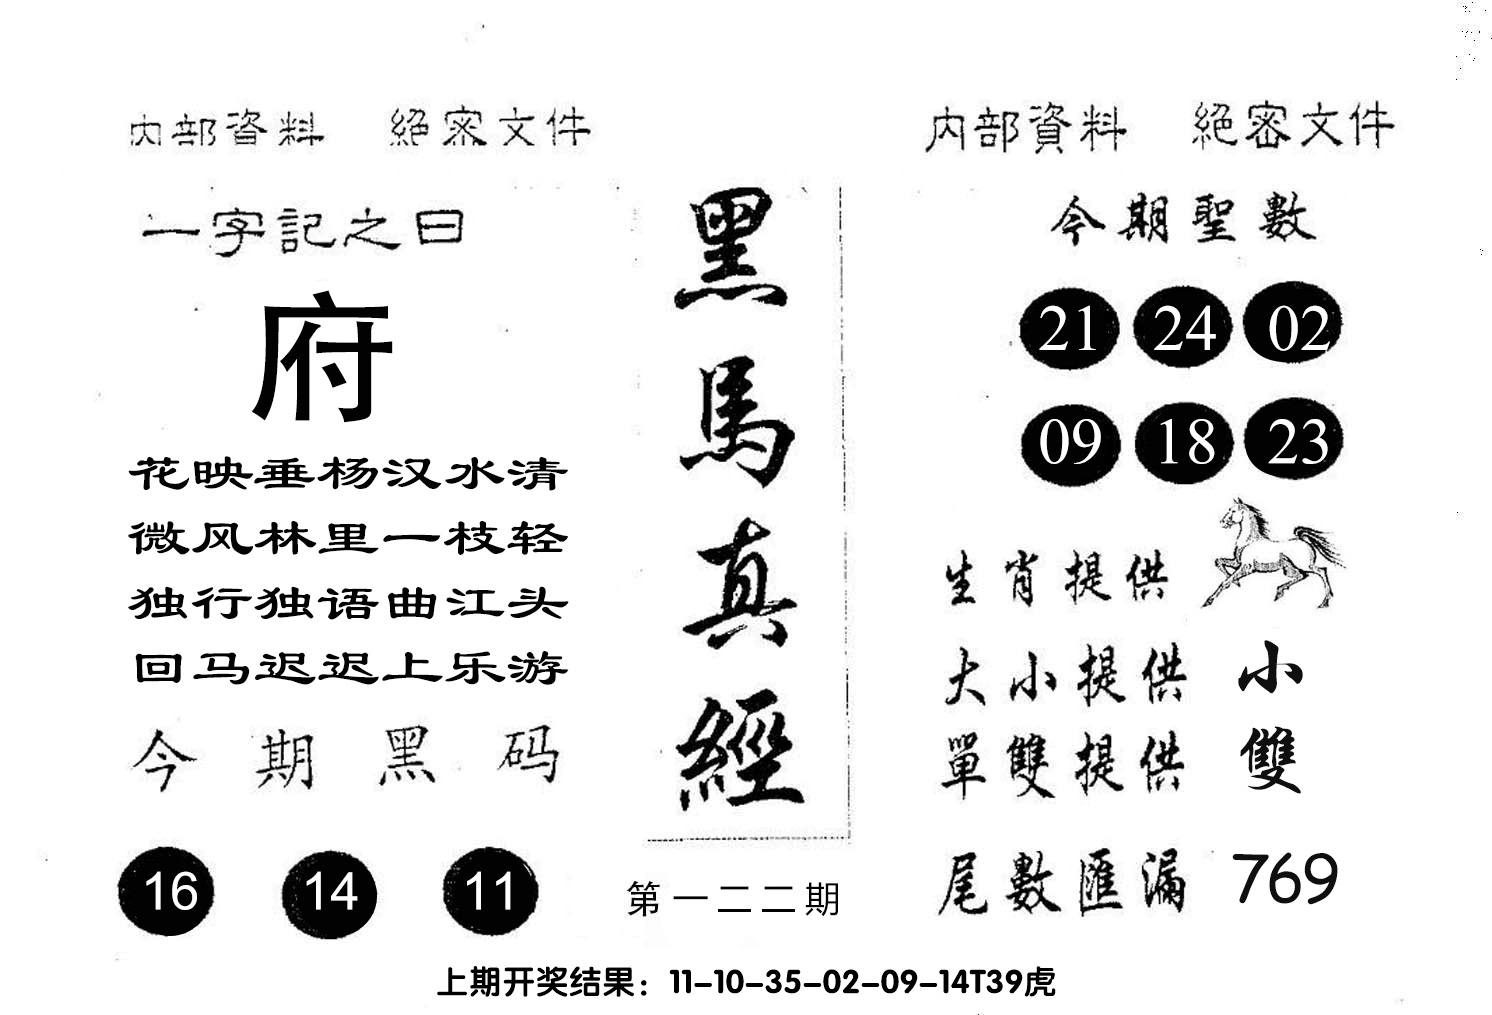 内部資料 絕密文件
一字記之曰
府
花映垂杨汉水清
微风林里一枝轻
独行独语曲江头
回马迟迟上乐游
今期黑码
16 14 11
黑馬真經
第一二二期
内部資料 絕密文件
今期聖數
21 24 02
09 18 23
生肖提供
大小提供 小
單雙提供 雙
尾數匯漏 769
上期开奖结果：11-10-35-02-09-14T39虎